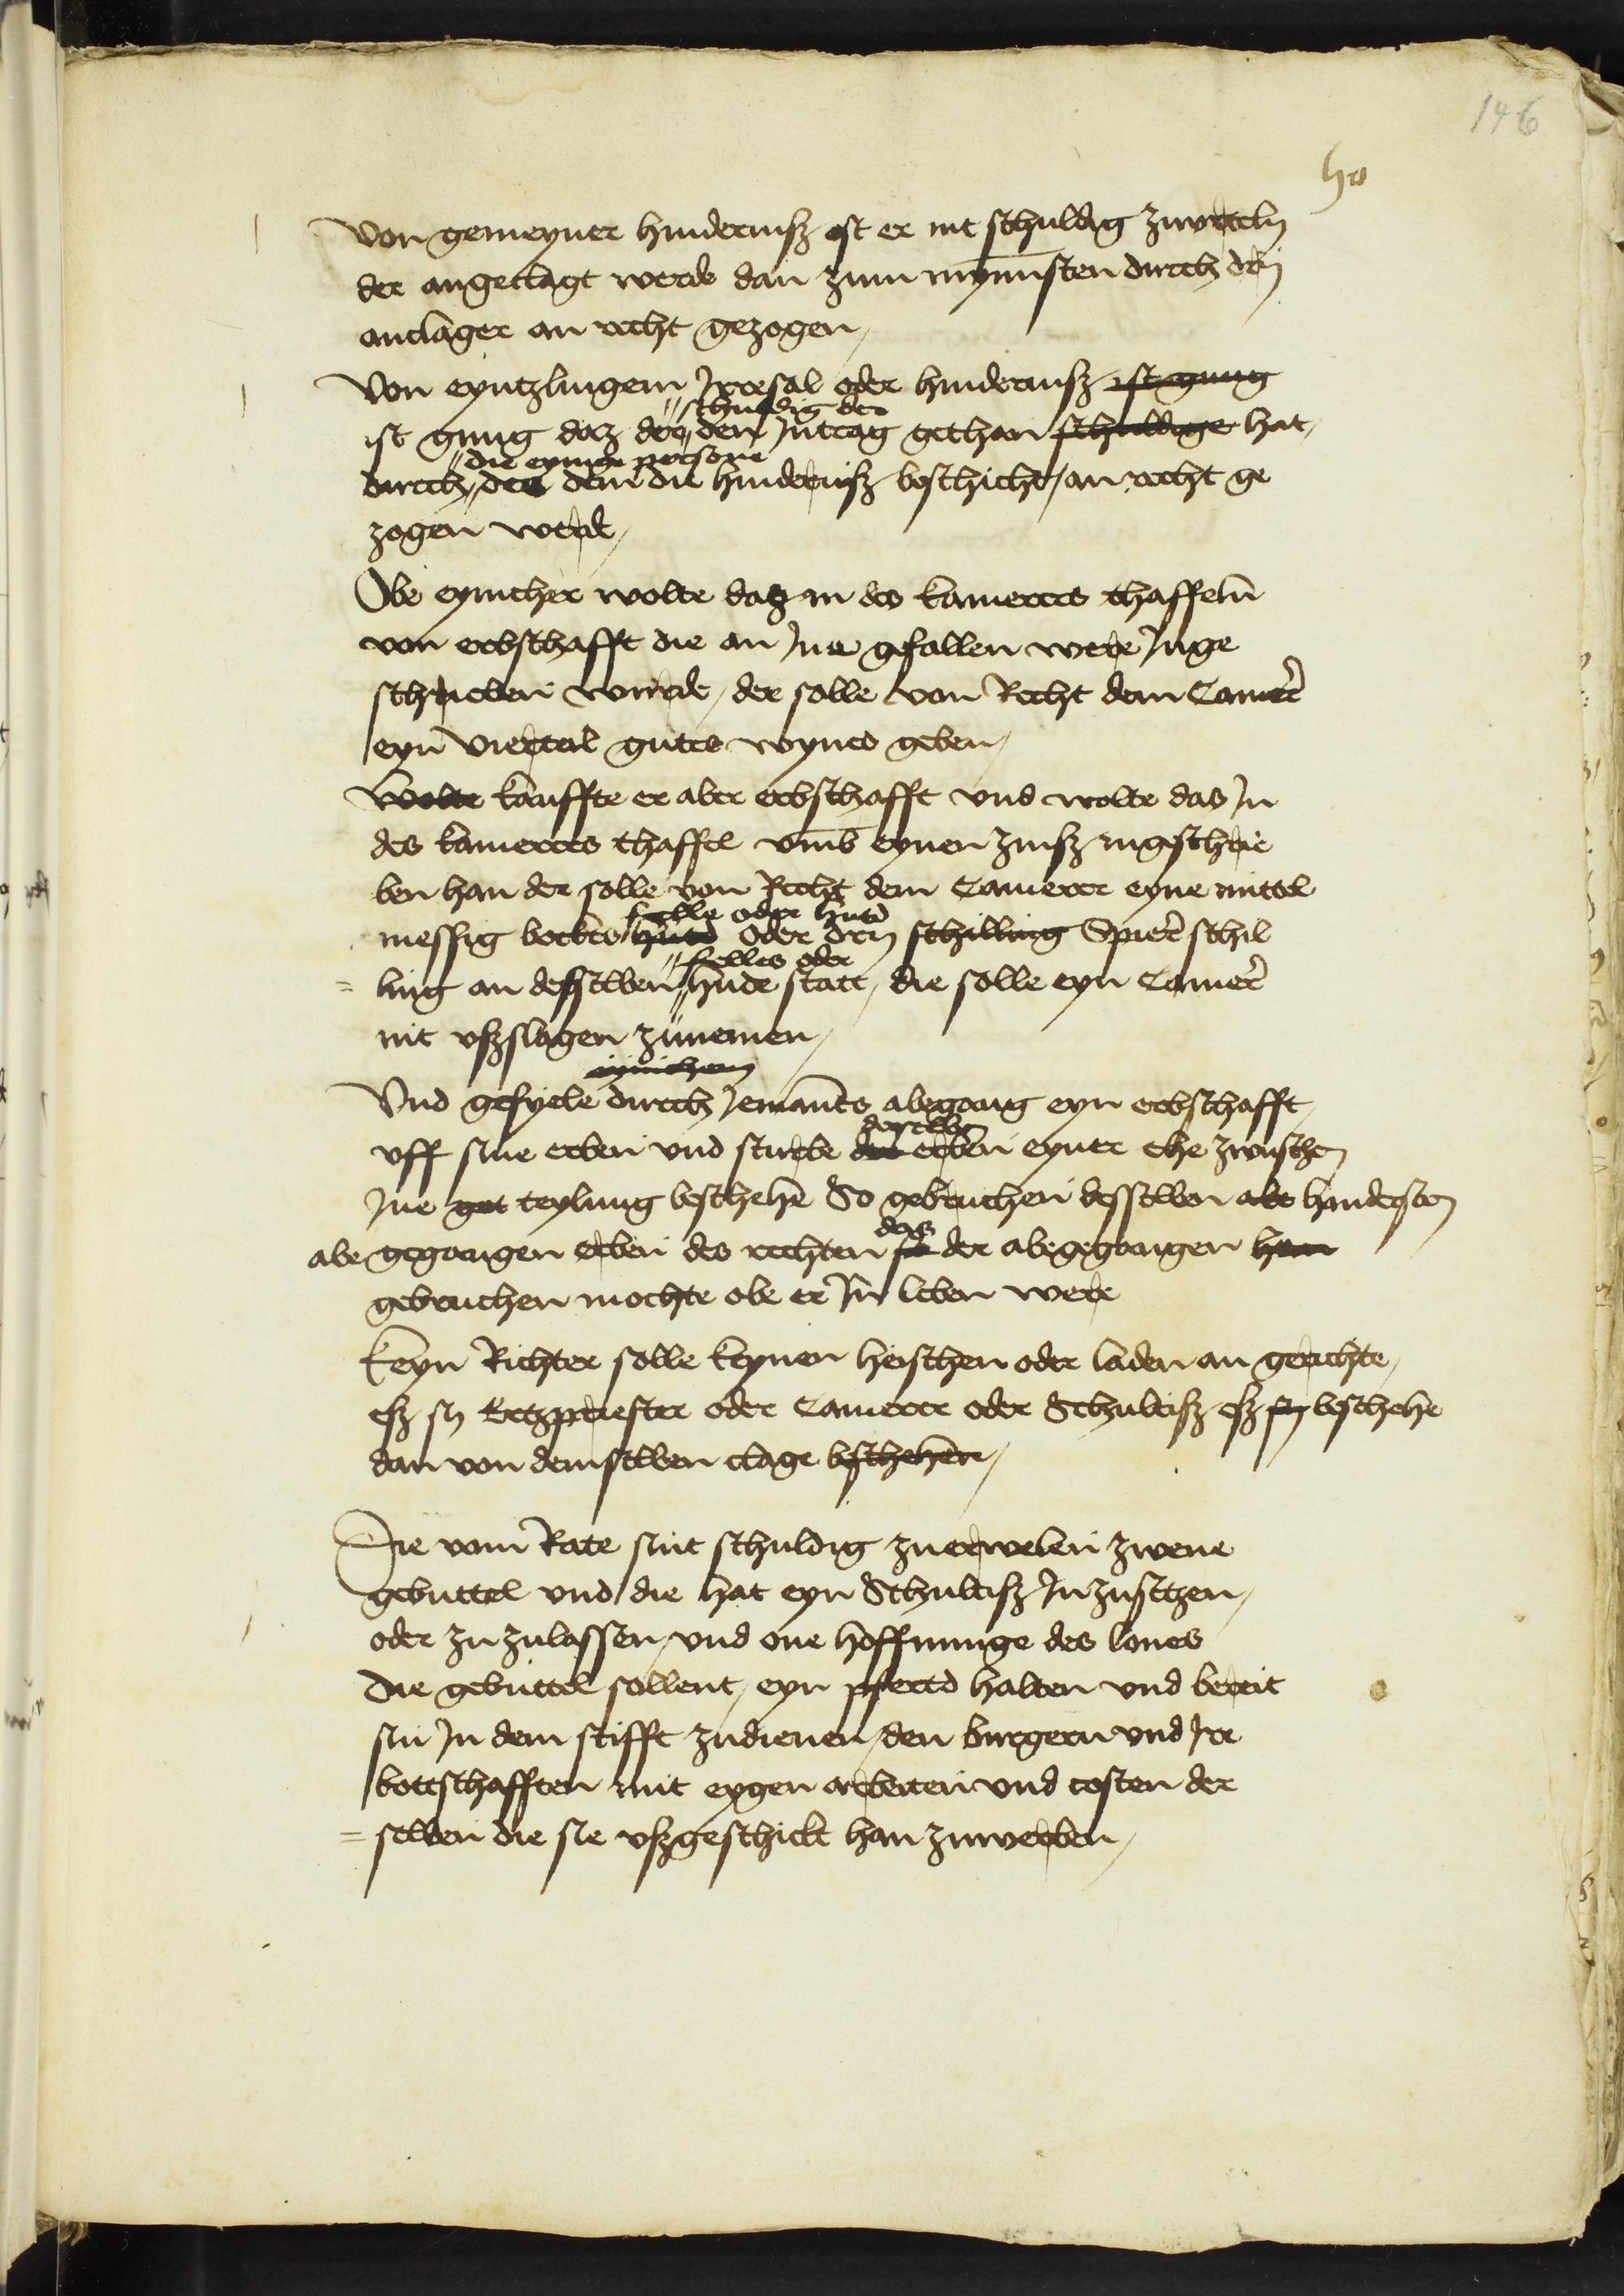 146
Von gemeyner hindernisz ist er nit schuldig zuvrteln
der angeclagt werde dan zum mynnsten durch dry
anclager an recht gezogen,
Von eyntzlingem Jrresal oder hindernisz ist gnung
schuldig der
ist gnung daz der den Jntrag gethan schuldige hat,
die eynige persone
durch der dem die hindernisz beschicht, an recht ge
zogen werde,
Obe eynicher wolte daz in des kamerers thaffeln
von erbschafft die an Jne gefallen were Jnge
schrieben wurde, der solle von Recht dem Camerer
eyn vierteil gutes wynes geben,
Wolte kauffte er aber erbschafft vnd wolte das Jn
des kamerers thaffel vmb eynen zinsz ingeschrie
ben han der solle von Recht dem Camerer eyne mittel
felle oder hute
messig bockes hute oder dry schilling Spirer schil
felles oder
ling an desselben hude statt, die solle eyn Camerer
nit vszslagen zünemen,
eynichem
Vnd gefyele durch Jemants abegang eyn erbschafft,
derselben
vff sine erben vnd sturbe der erben eyner ehe zwuschen
Jne get teylung beschehe So gebruchen desselben abe hindersten
das
abe gegangen erben des rechten so der abegegangen han
gebruchen mochte obe er Jn leben were
Keyn Richter solle keynen heischen oder laden an gerichte,
esz sy Ertzpriester oder Camerer oder Schulteisz esz sy beschehe
dan von demselben clage beschehen,
Die vom Rate sint schuldig zuerwelen zwene
gebuttel vnd die hat eyn Schulteisz Jnzusetzen,
oder zu zulassen, vnd one hoffnunge des lones
Die gebuttel sollent, eyn pferd halten vnd bereit
sin Jn dem stifft zudienen, den burgern vnd Jre
bottschafften mit eygen arbeiten vnd costen der
selben die sie vszgeschickt han zuwerben,